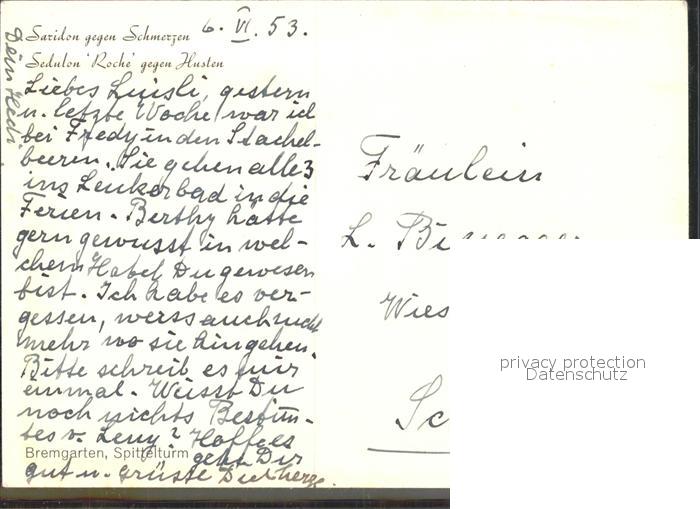 Saridon gegen Schmerzen
6. VI. 53.
Sedulon 'Roche' gegen Husten
Liebes Luisli, gestern
u. letzte Woche war ich
bei Fredy in den Stachel-
beeren. Sie gehen alle 3
ins Leukerbad in die
Ferien. Berthy hätte
gern gewusst in wel-
chem Hotel Du gewesen
bist. Ich habe es ver-
gessen, weiss auch nicht
mehr wo sie hingehen.
Bitte schreib es mir
einmal. Weisst Du
noch nichts Bestimm-
tes v. Leny? Hoffe es
Bremgarten, Spittelturm
geht Dir
gut u. grüsse Dich herzl.
Dein Hedi
Fräulein
L.
Wies
Sc
privacy protection
Datenschutz